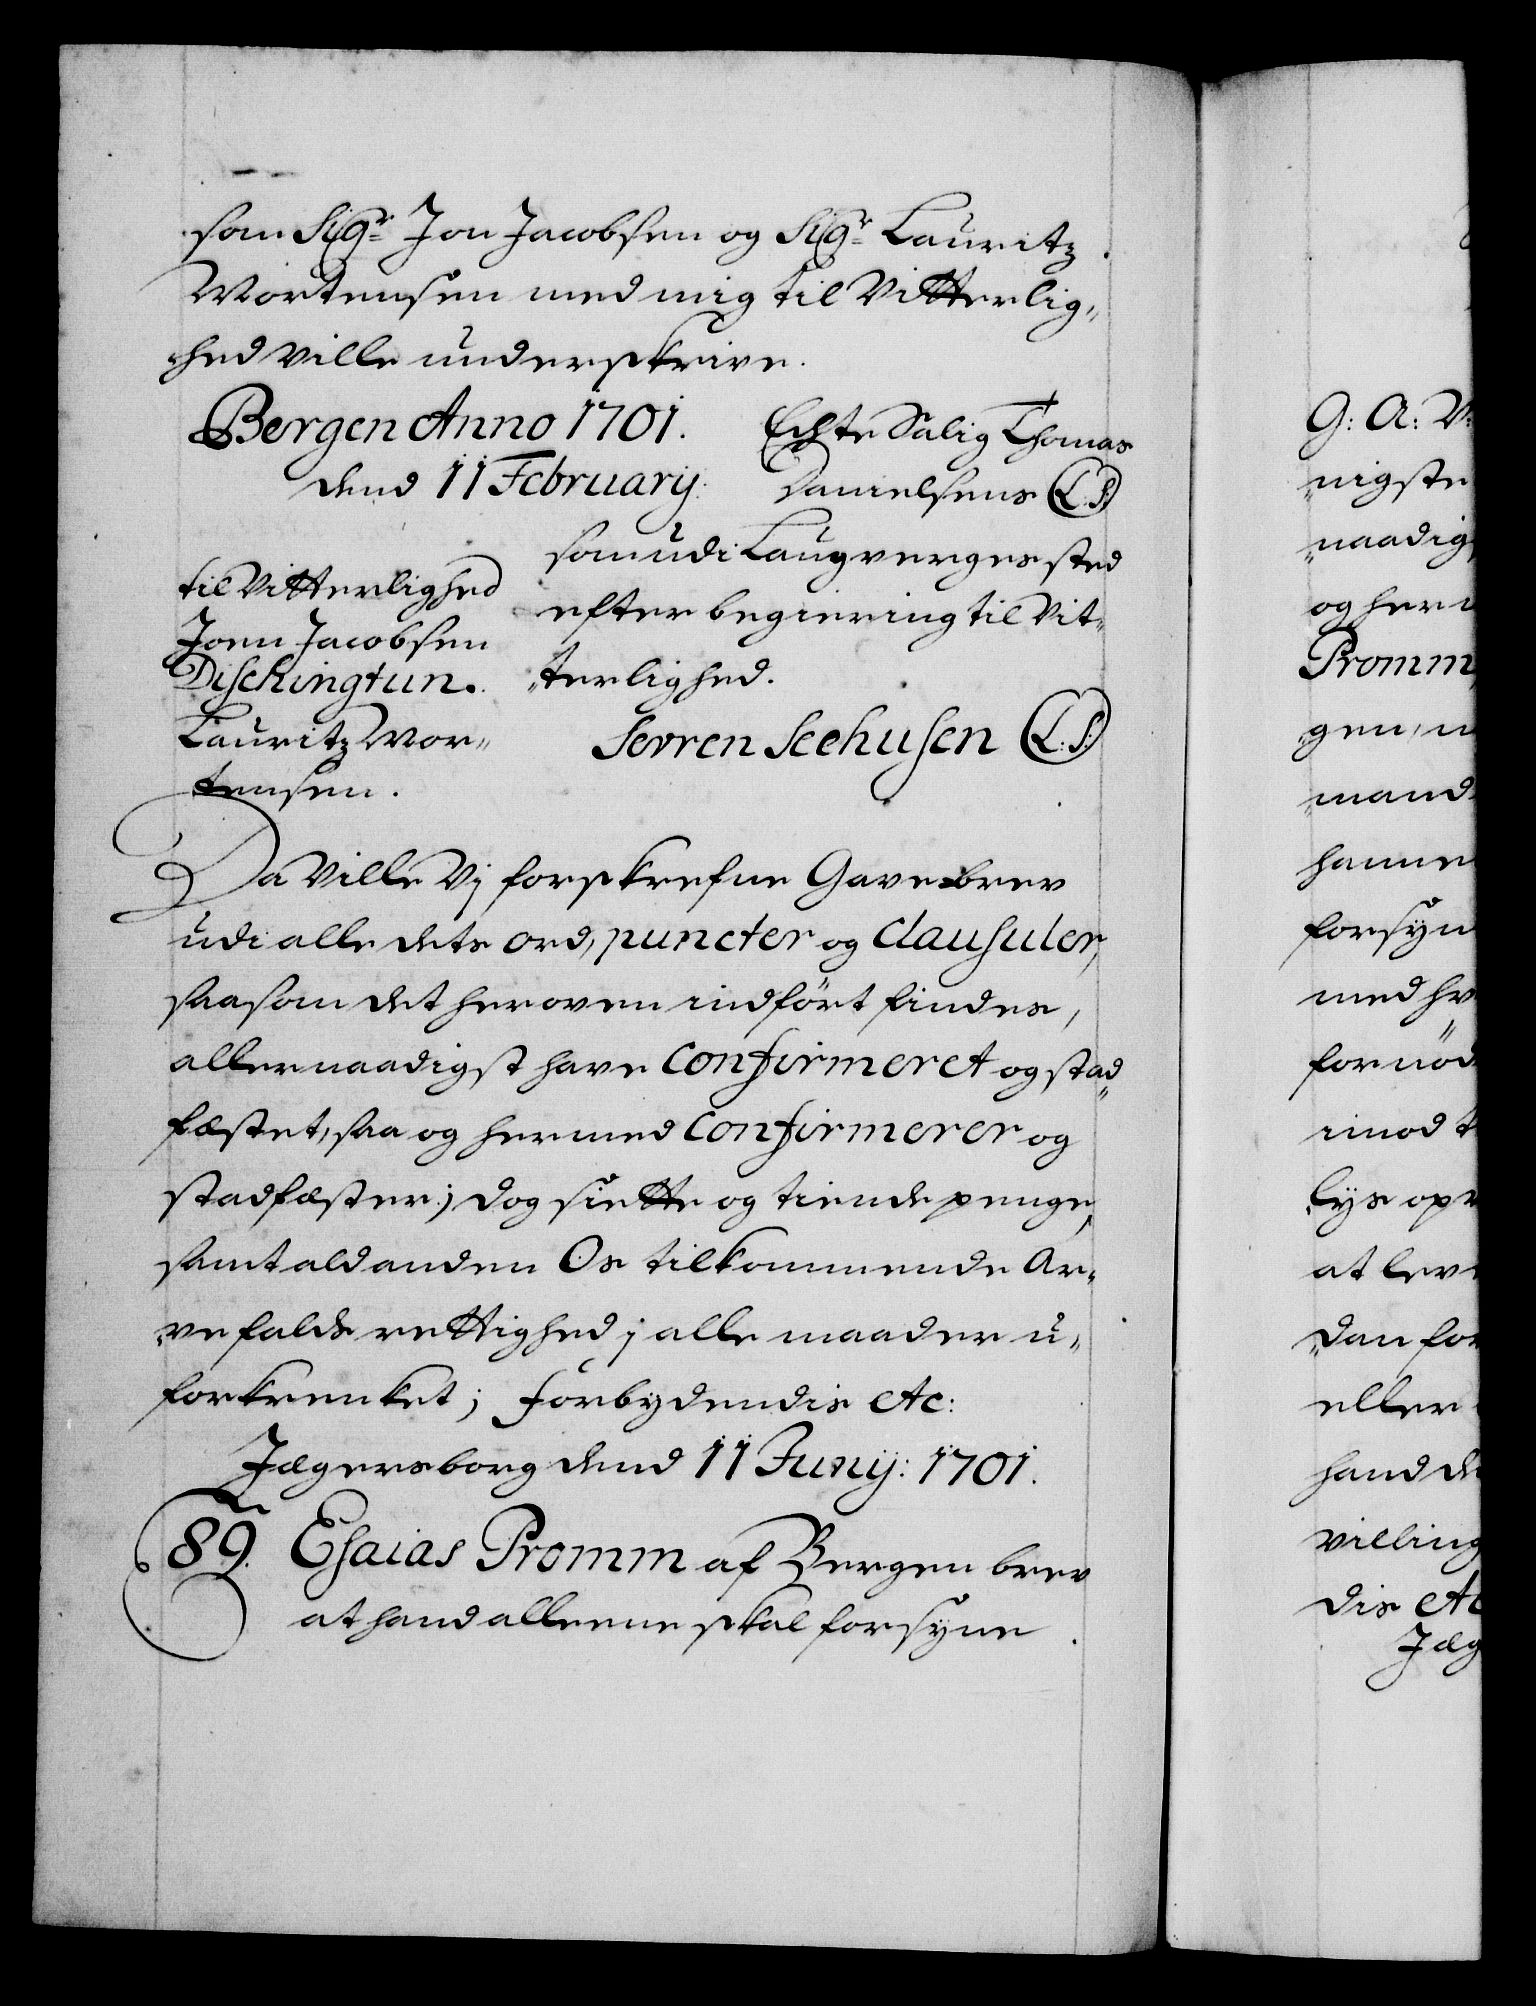 som Sigr Jon Jacobsen og Sigr Lauritz
Mortensen med mig til Vitterlig„
hed ville underskrive.
Bergen Anno 1701.
dend 11 February:
Echte Salig Thomas
Danielsens (L.S.)
som udi Laugverges sted
efter begiering til Vit„
„terlighed.
Sevren Seehusen (L:S:)
til Vitterlighed
Joen Jacobsen
Dischingtun.
Lauritz Mor„
tensen.
Da Ville Vj forskrefne Gavebrev
udi alle dets ord, puncter og Clausuler,
saasom det heroven indfört findes,
allernaadigst have Confirmeret og stad„
fæstet, saa og hermed Confirmerer og
stadfæster; dog siette og tiende penge,
samt ald anden Os tilkommende Ar„
„vefalds rettighed j alle maader u„
forkrenket; Forbydendis etc:
Jægersborg dend 11 Junij: 1701.
89. Esaias Promm af Bergen brev
at hand alleene skal forsyne
G: A: V:
nigste
„naadig
og her
Promm
gen,
mand
hanne
forsyn
med
fornöd
imod
lys
at lev
„dan for
eller
hand de
villing
dis etc
Jæg